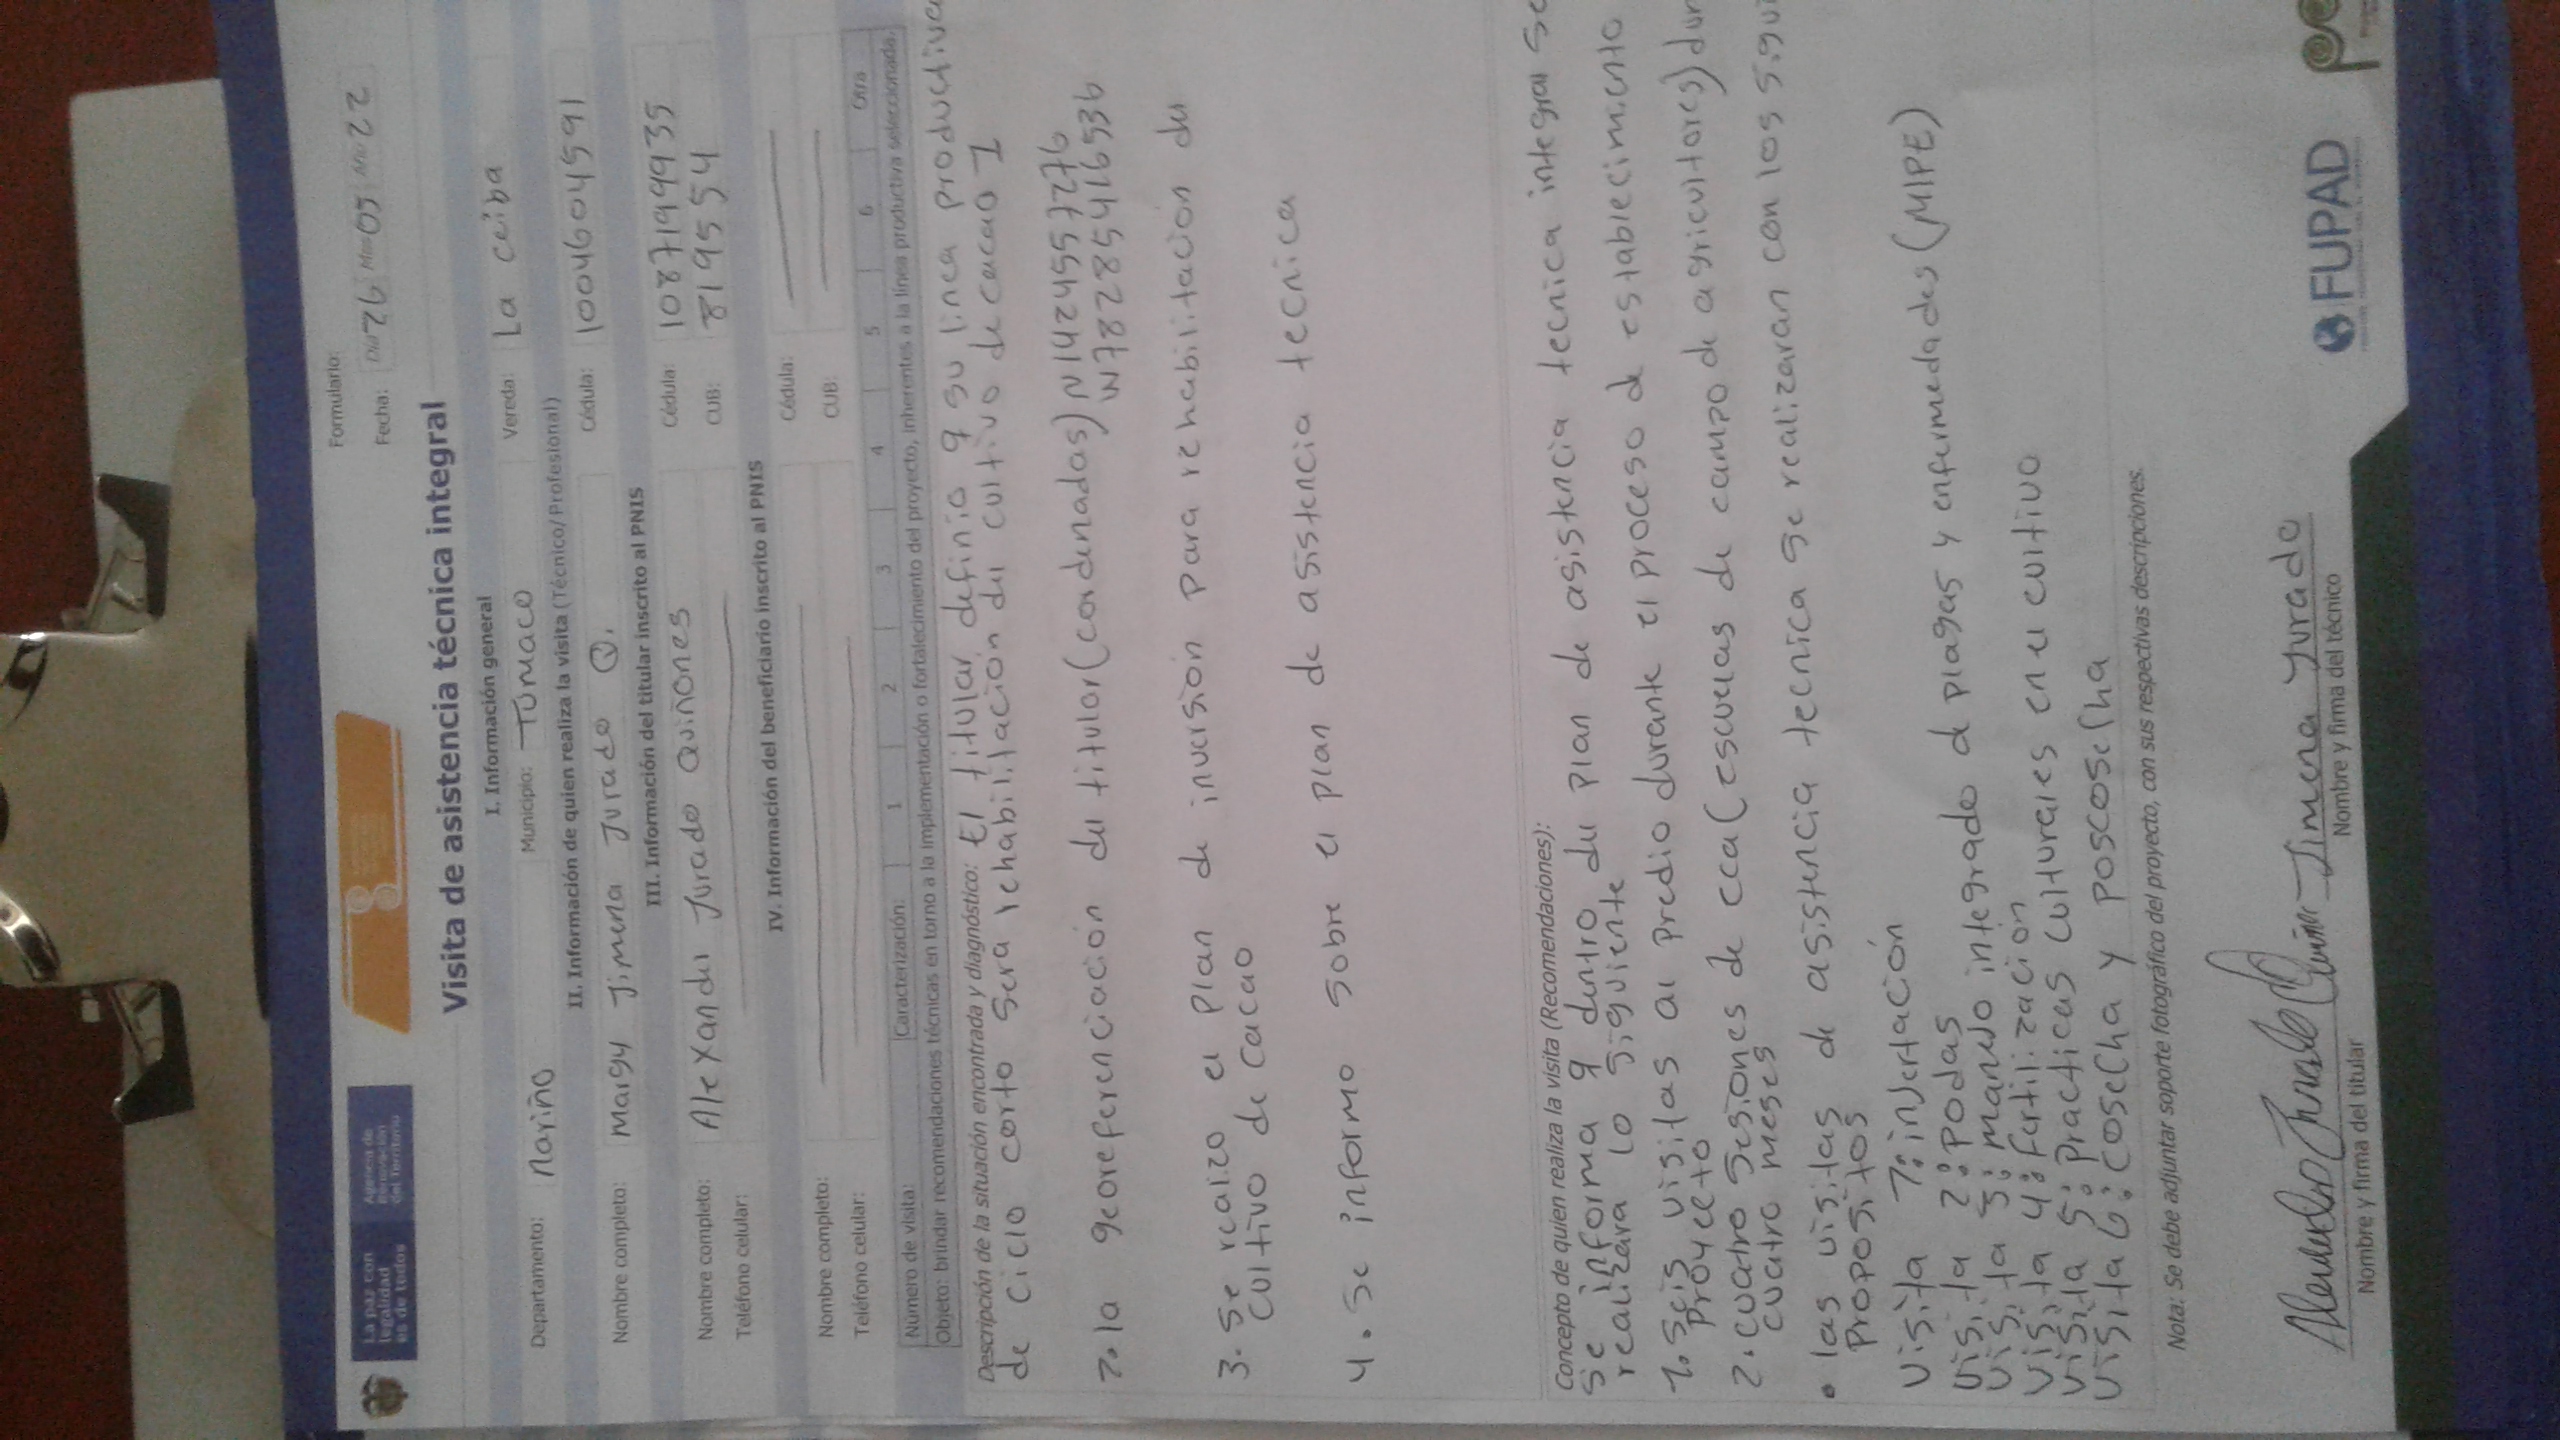 La paz con legalidad es de todos
Agencia de Renovación del Territorio
Formulario:
Fecha: Día 26 Mes 05 Año 22
Visita de asistencia técnica integral
I. Información general
Departamento: nariño Municipio: Tumaco Vereda: La ceiba
II. Información de quien realiza la visita (Técnico/ Profesional)
Nombre completo: Margy Jimena Jurado Q. Cédula: 1004604591
III. Información del titular inscrito al PNIS
Nombre completo: Alexander Jurado Quiñones Cédula: 1087199935
Teléfono celular: CUB: 819554
IV. Información del beneficiario inscrito al PNIS
Nombre completo: Cédula:
Teléfono celular: CUB:
Número de visita: Caracterización: 1 2 3 4 5 6 Otra
Objeto: brindar recomendaciones técnicas en torno a la implementación o fortalecimiento del proyecto, inherentes a la línea productiva seleccionada.
Descripción de la situación encontrada y diagnóstico: El titular definio q su linea productiva
de ciclo corto sera rehabilitación del cultivo de cacao 1
2. la georeferenciación del titular (cordenadas) N 142455726
W 7828541653b
3. Se realizo el plan de inversión para rehabilitación del
cultivo de cacao
4. Se informo sobre el plan de asistencia tecnica
Concepto de quien realiza la visita (Recomendaciones):
Se informa q dentro del plan de asistencia tecnica integral se
realizara lo siguiente
1. Seis visitas al predio durante el proceso de establecimiento
proyecto
2. cuatro sesiones de cca (escuelas de campo de agricultores) dur
cuatro meses
• las visitas de asistencia tecnica se realizaran con los sigui
propositos
Visita 1: injertación
Visita 2: Podas
Visita 3: manejo integrado d plagas y enfermedades (MIPE)
Visita 4: fertilización
Visita 5: Practicas culturales en el cultivo
Visita 6: cosecha y poscosecha
Nota: Se debe adjuntar soporte fotográfico del proyecto, con sus respectivas descripciones.
Alexander Jurado Quiñones Jimena Jurado
Nombre y firma del titular Nombre y firma del técnico
FUPAD